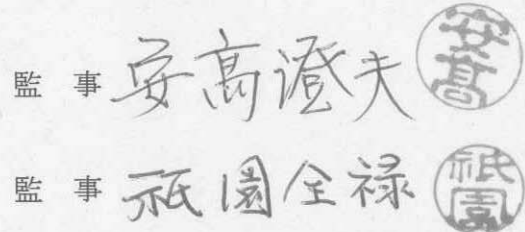 監事 安高澄夫 安高
監事 祇園全禄 祇園